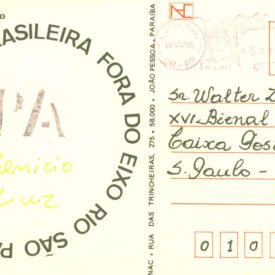 BRASILEIRA FORA DO EIXO RIO SÃO PA
NAC - RUA DAS TRINCHEIRAS, 275 - 58.000 - JOÃO PESSOA - PARAÍBA
Sr. Walter Z
XVI Bienal
Caixa Pos
S. Paulo -
0 1 0